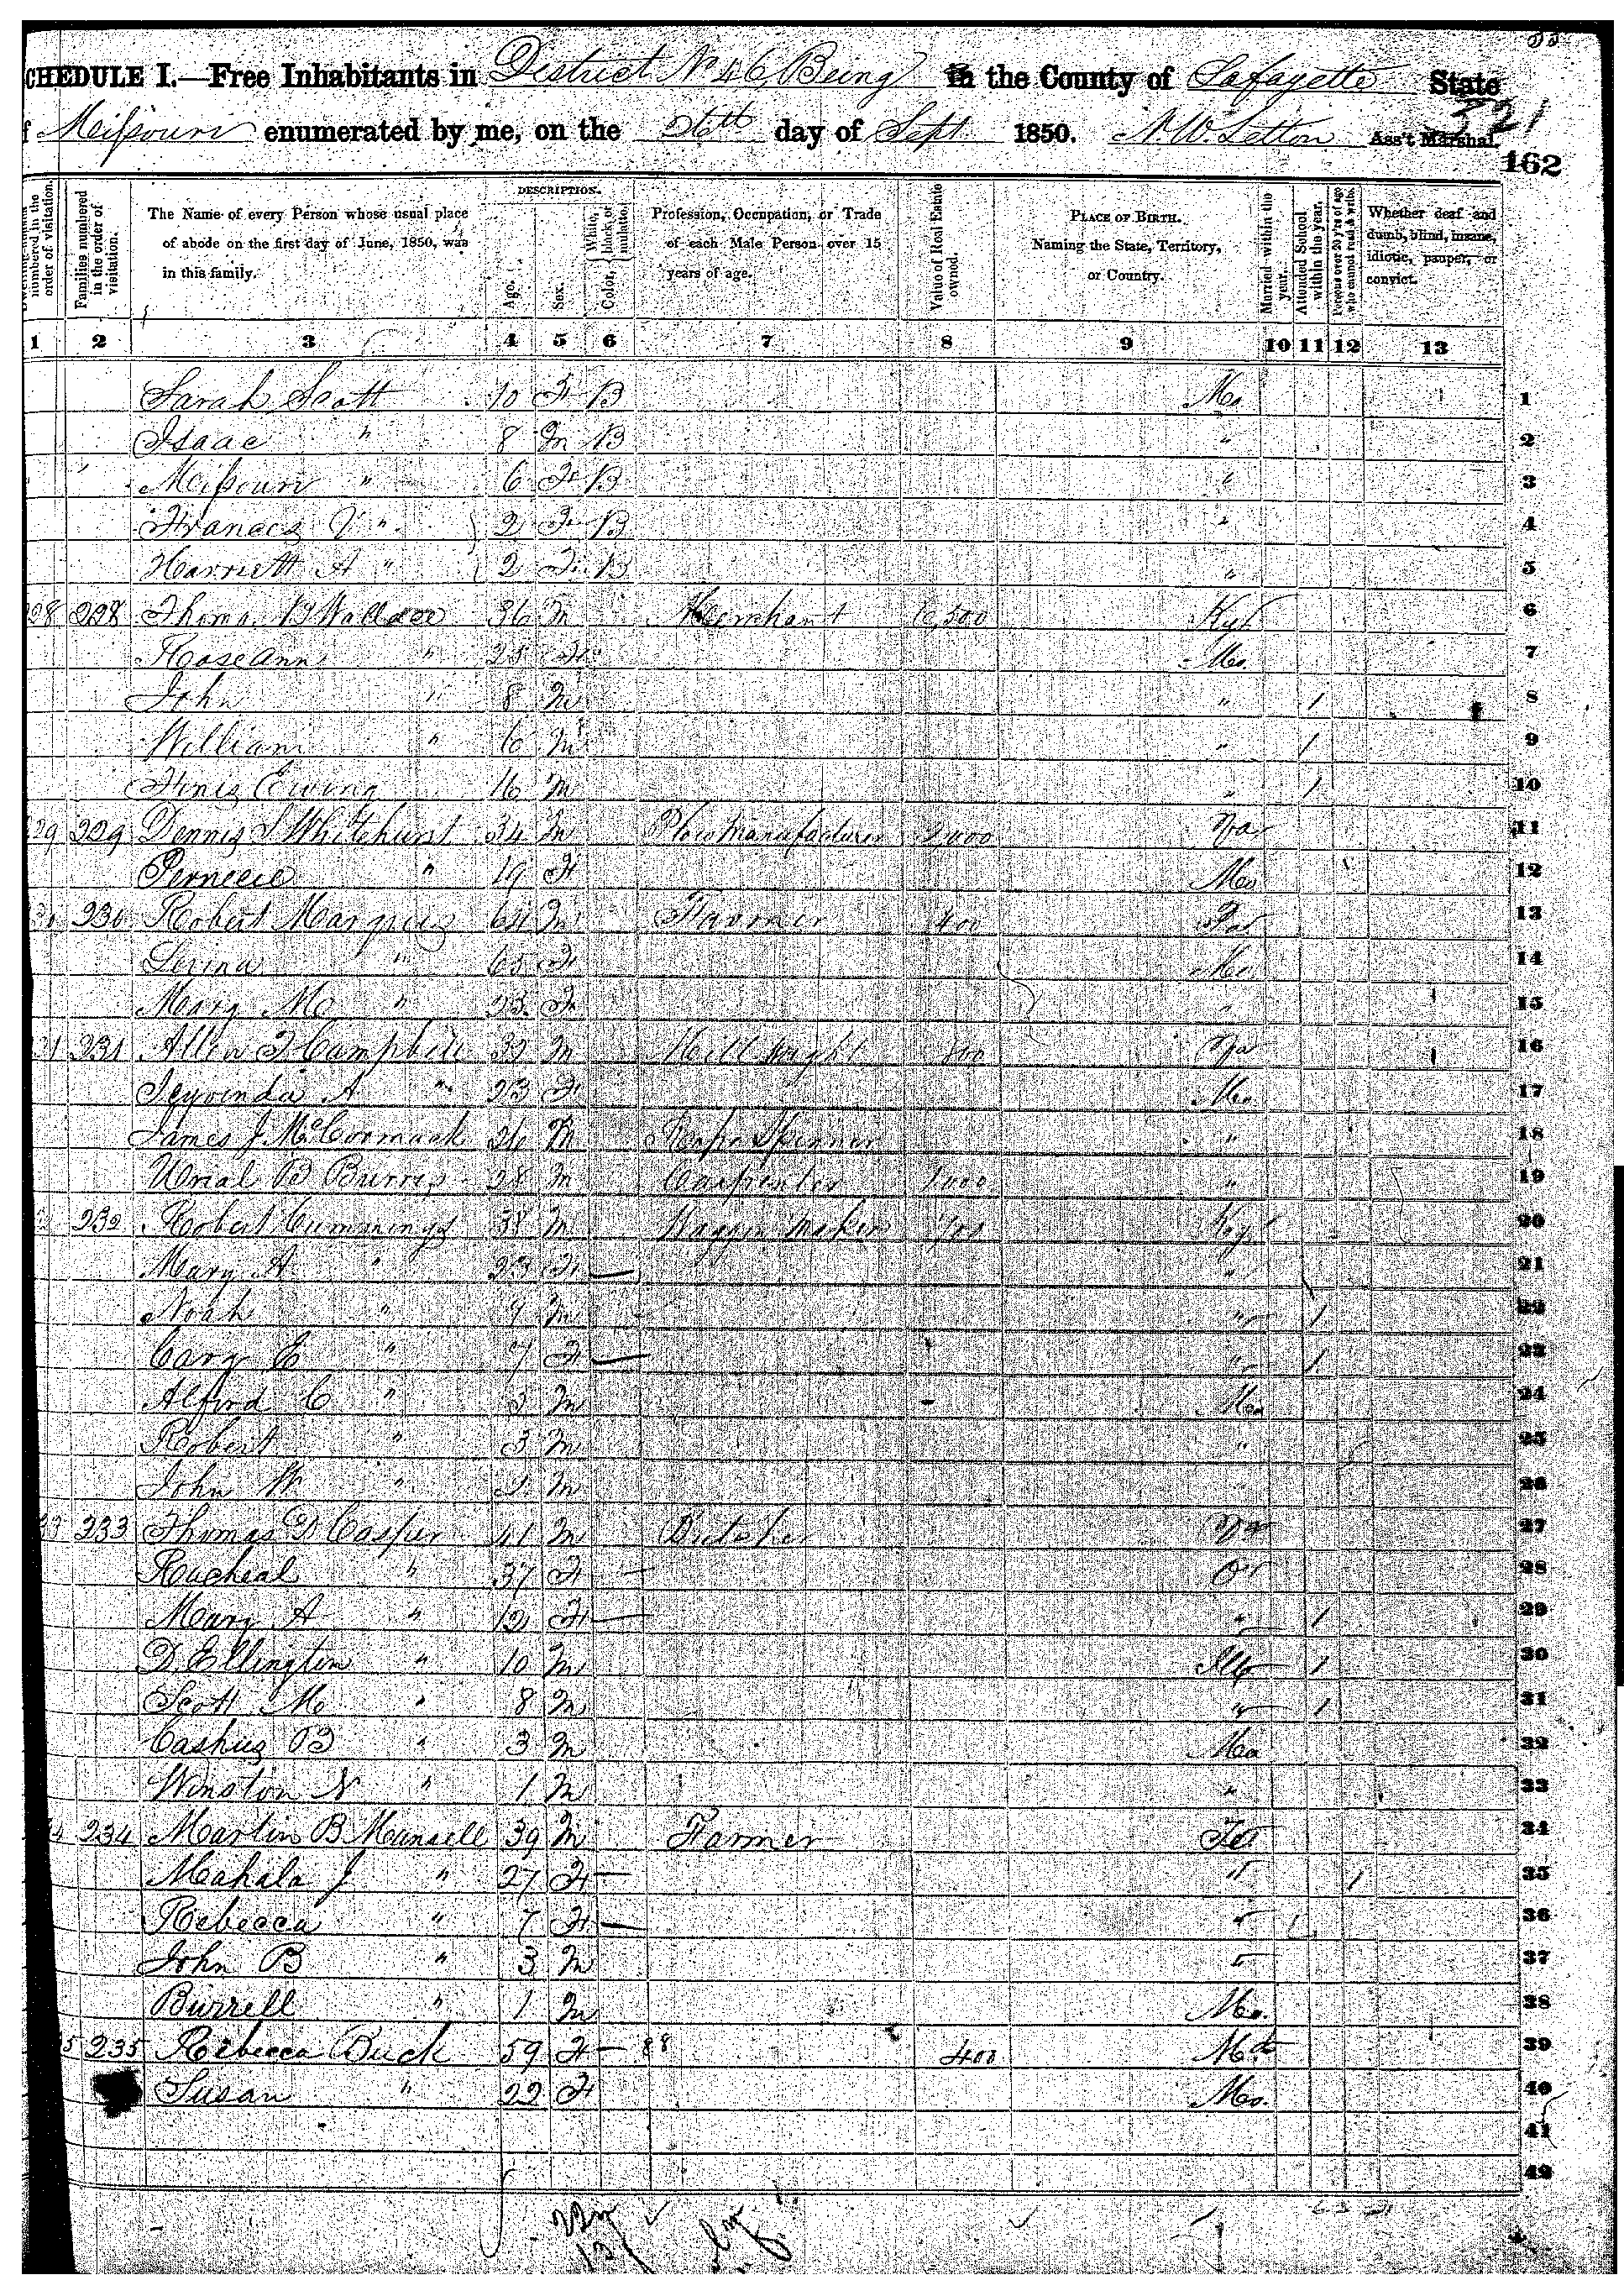 SCHEDULE I.—Free Inhabitants in District No 46 Being in the County of Lafayette State
of Missouri enumerated by me, on the 26th day of Sept 1850. N. W. Letton Ass't Marshal.
221
162
numbered in the order of visitation.
Families numbered in the order of visitation.
The Name of every Person whose usual place of abode on the first day of June, 1850, was in this family.
DESCRIPTION.
Age.
Sex.
Color, White, black, or mulatto.
Profession, Occupation, or Trade of each Male Person over 15 years of age.
Value of Real Estate owned.
PLACE OF BIRTH. Naming the State, Territory, or Country.
Married within the year.
Attended School within the year.
Persons over 20 y'rs of age who cannot read & write.
Whether deaf and dumb, blind, insane, idiotic, pauper, or convict.
1 2 3 4 5 6 7 8 9 10 11 12 13
Sarah Scott 10 F B Mo 1
Isaac " 8 M B " 2
Missouri " 6 F B " 3
Frances V " 2 F B " 4
Harriett A " 2 F B " 5
228 228 Thomas B Wallace 36 M Merchant 10,500 Ky 6
Rose Ann " 25 F Mo 7
John " 8 M " 1 8
William " 6 M " 1 9
Finis Ewing 16 M " 1 10
229 229 Dennis S Whitehurst 34 M Plow Manufacturer 2,000 Va 11
" 19 F Mo 12
230 Robert Marquis 64 M Farmer 400 13
" 65 F 14
Mary M " 23 F " 15
231 231 Allen T Campbell 32 M Mill Wright 800 Va 16
A " 23 F Mo 17
James J McCormack 26 M Rope Spinner " 18
Urial B Burris 28 M Carpenter 1000 " 19
232 Robert Cummings 38 M Waggon Maker 700 Ky 20
Mary A " 23 F " 21
Noah " 9 M " 1 22
Cary E " 7 F " 1 23
Alford C " 3 M Mo 24
Robert " 3 M " 25
John W " M 26
233 233 Thomas D Casper 41 M Butcher Va 27
Racheal " 37 F O 28
Mary A " 12 F " 1 29
D. Ellington " 10 M Ills 1 30
Scott M " 8 M " 1 31
Cashus B " 3 M Mo 32
Winston N " 1 M " 33
234 Martin B Mansell 39 M Farmer Ten 34
Mahala J " 27 F " 1 35
Rebecca " 7 F " 36
John B " 3 M " 37
Burrell " 1 M Mo. 38
5 235 Rebecca Buck 59 F 88 400 Md 39
Susan " 22 F Mo. 40
41
42